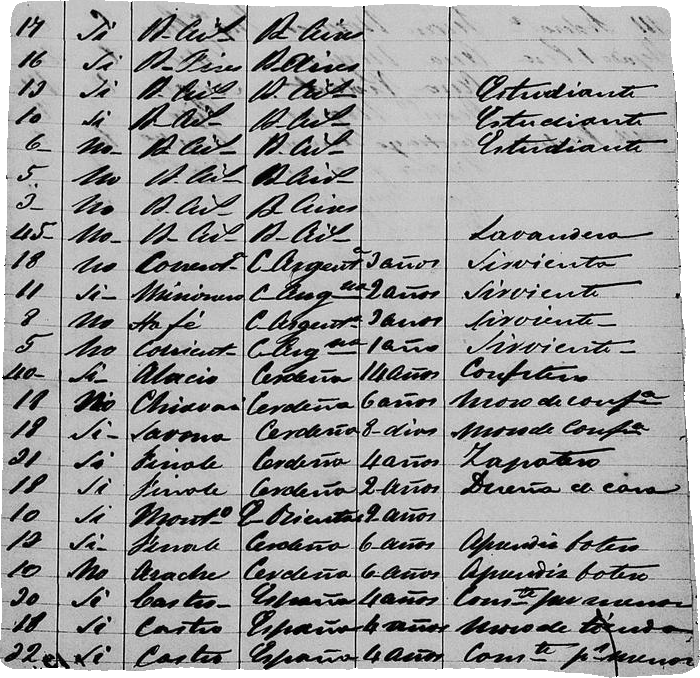 17 Si B. Ail B. Aires
16 Si B. Aires B. Aires
13 Si B. Ail B. Ail Estudiante
10 Si B. Ail B. Ail Estudiante
6 No B. Ail B. Ail Estudiante
5 No B. Ail B. Ail
3 No B. Ail B. Aires
45 No B. Ail B. Ail Lavandera
18 no Corrent.s C. Argent.a 3 años Sirvienta
11 Si Misiones C. Arg.na 2 años Sirviente
8 No Sta fé C. Argent.a 3 años Sirviente
5 No Corrient. C. Arg.na 1 año Sirviente
40 Si Alacio Cerdeña 14 años Confitero
18 No Chiavari Cerdeña 6 años Moso de conf.a
18 Si Savona Cerdeña 8 dias Moso de Conf.a
21 Si Finale Cerdeña 4 años Zapatero
18 Si Finale Cerdeña 2 años Dueña de casa
10 Si Mont.o E. Oriental 9 años
12 Si Finale Cerdeña 6 años Aprendis botero
10 No Cerdeña 6 años Aprendis botero
20 Si Castro España 4 años Com.te por menor
18 Si Castro España 4 años Moso de tienda
22 Si Castro España 4 años Com.te p.r menor